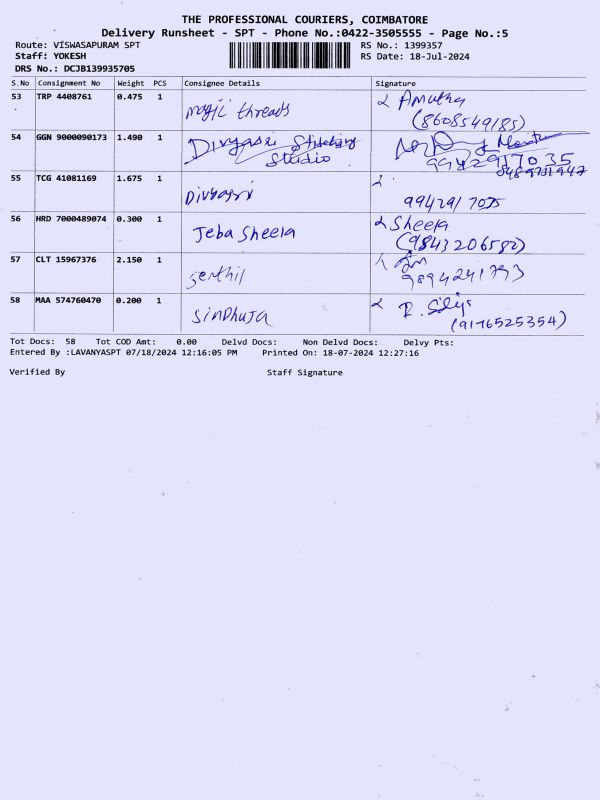 THE PROFESSIONAL COURIERS, COIMBATORE
Delivery Runsheet - SPT - Phone No.:0422-3505555 - Page No.:5
Route: VISWASAPURAM SPT RS No.: 1399357
Staff: YOKESH RS Date: 18-Jul-2024
DRS No.: DCJB139935705
S.No Consignment No Weight PCS Consignee Details Signature
53 TRP 4408761 0.475 1 magic threads Amutha
(8608549185)
54 GGN 9000090173 1.490 1 Divyasri Stitching
Studio 9942917035
55 TCG 41081169 1.675 1 Divyasri
56 HRD 7000489074 0.300 1 Jeba Sheela Sheela
(9843206582)
57 CLT 15967376 2.150 1 Senthil
9894241793
58 MAA 574760470 0.200 1 Sindhuja
(9176525354)
Tot Docs: 58 Tot COD Amt: 0.00 Delvd Docs: Non Delvd Docs: Delvy Pts:
Entered By :LAVANYASPT 07/18/2024 12:16:05 PM Printed On: 18-07-2024 12:27:16
Verified By Staff Signature